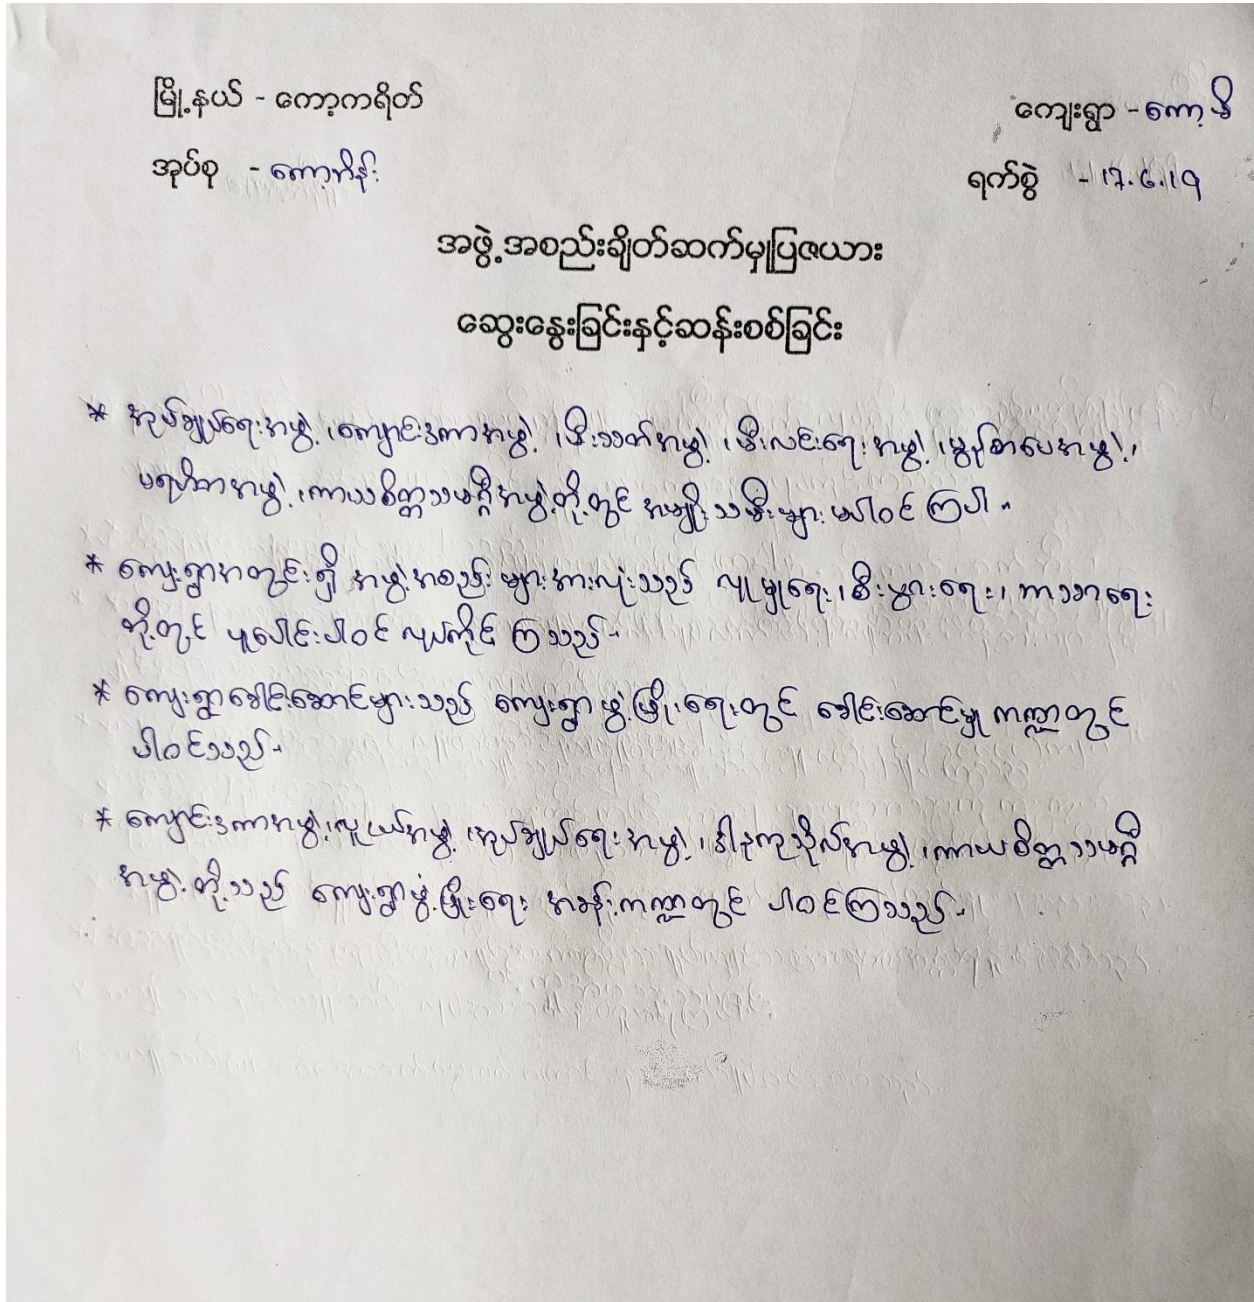 မြို့နယ် - ကော့ကရိတ်
ကျေးရွာ - ကော့မိ
အုပ်စု - ကော့ဘိန်း
ရက်စွဲ - ၁၇.၆.၁၉
အဖွဲ့အစည်းချိတ်ဆက်မှုပြဇယား
ဆွေးနွေးခြင်းနှင့်ဆန်းစစ်ခြင်း
* အုပ်ချုပ်ရေးအဖွဲ့၊ ကျောင်းဒကာအဖွဲ့၊ မီးသတ်အဖွဲ့၊ မီးလင်းရေးအဖွဲ့၊ မွန်စာပေအဖွဲ့၊
ပရဟိတအဖွဲ့၊ ကာယစိတ္တသမဂ္ဂီအဖွဲ့တို့တွင် အမျိုးသမီးများ မပါဝင်ကြပါ။
* ကျေးရွာအတွင်းရှိ အဖွဲ့အစည်းများအားလုံးသည် လူမှုရေး၊ စီးပွားရေး၊ ဘာသာရေး
တို့တွင် ပူပေါင်းပါဝင် လုပ်ကိုင်ကြသည်။
* ကျေးရွာခေါင်းဆောင်များသည် ကျေးရွာဖွံ့ဖြိုးရေးတွင် ခေါင်းဆောင်မှု ကဏ္ဍတွင်
ပါဝင်သည်။
* ကျောင်းဒကာအဖွဲ့၊ လူငယ်အဖွဲ့၊ အုပ်ချုပ်ရေးအဖွဲ့၊ ဒါနကုသိုလ်အဖွဲ့၊ ကာယစိတ္တသမဂ္ဂီ
အဖွဲ့တို့သည် ကျေးရွာဖွံ့ဖြိုးရေး အခန်းကဏ္ဍတွင် ပါဝင်ကြသည်။